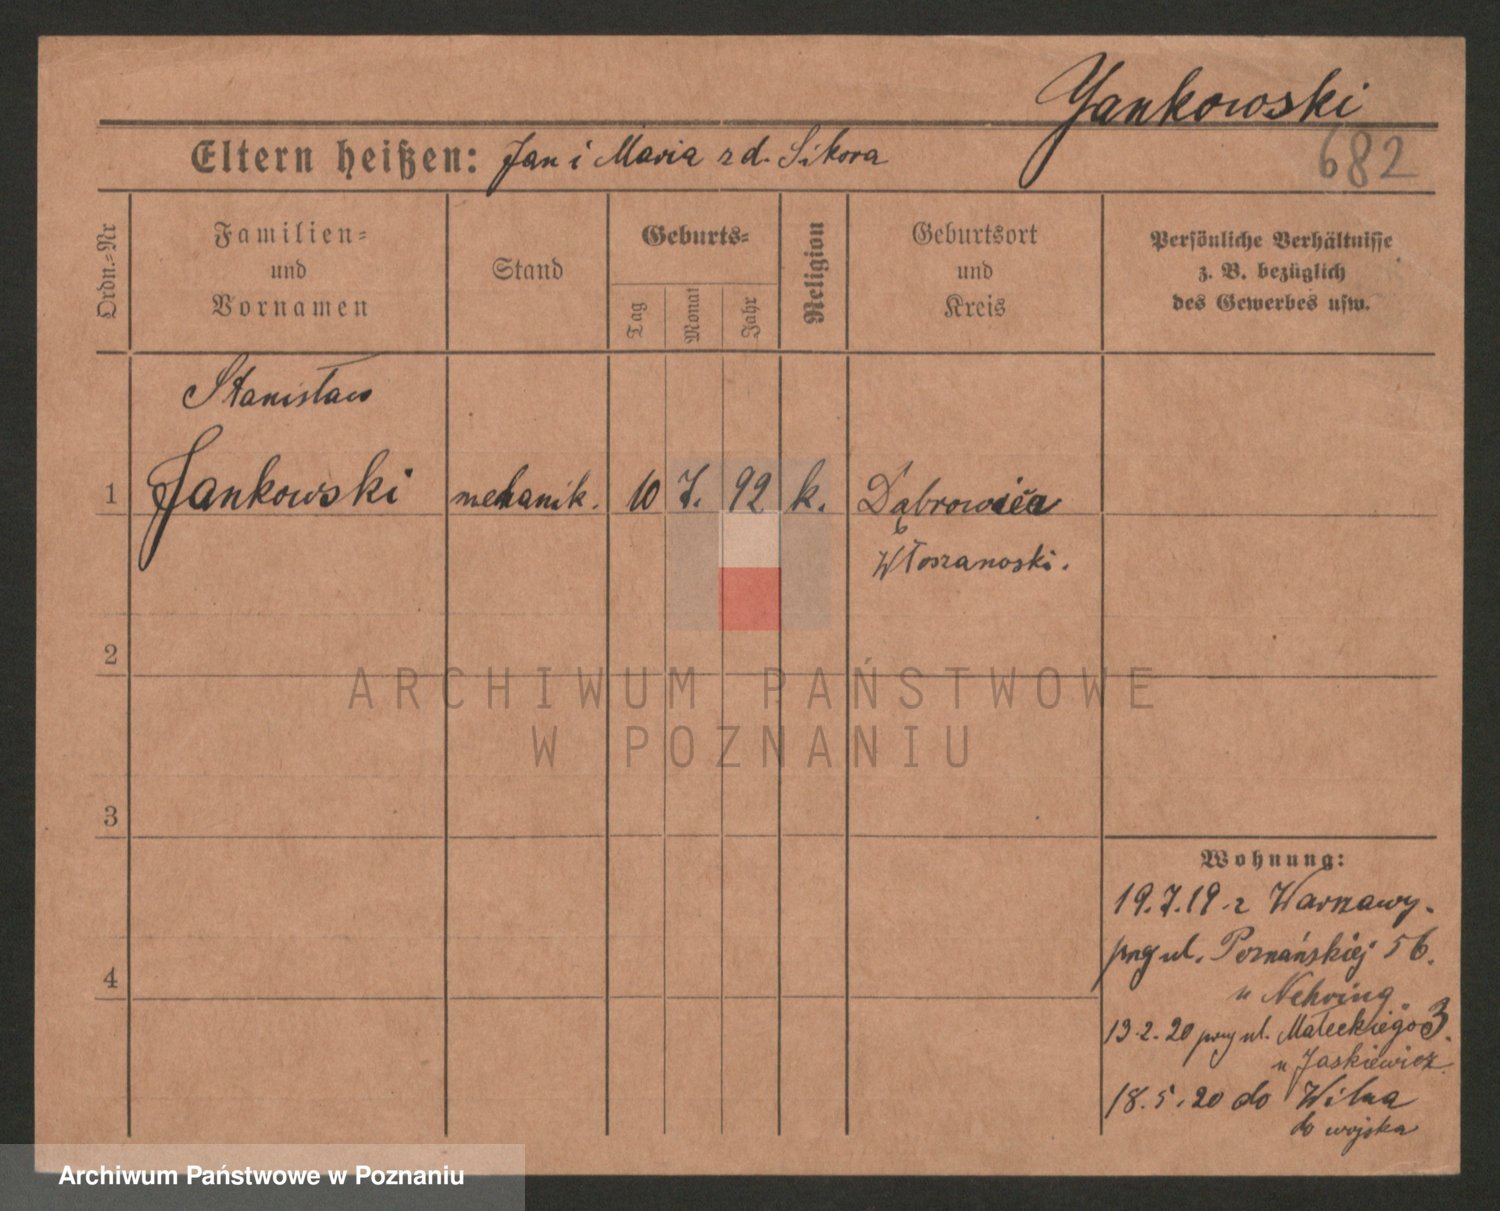 Jankowski
682
Eltern heißen: Jan i Maria z d. Sikora
Ordn.-Nr
Familien-
und
Vornamen
Stand
Geburts-
Tag
Monat
Jahr
Religion
Geburtsort
und
Kreis
Persönliche Verhältnisse
z. B. bezüglich
des Gewerbes usw.
Stanisław
1 Jankowski mechanik. 10 7. 92 k. Dąbrowica
2
ARCHIWUM PAŃSTWOWE
W POZNANIU
3
Wohnung:
19.7.19. z Warszawy.
przy ul. Poznańskiej 56.
u Nehring.
4
13.2.20 przy ul. Małeckiego 3.
u Jaskiewicz.
18.5.20 do Wilna
do wojska
Archiwum Państwowe w Poznaniu